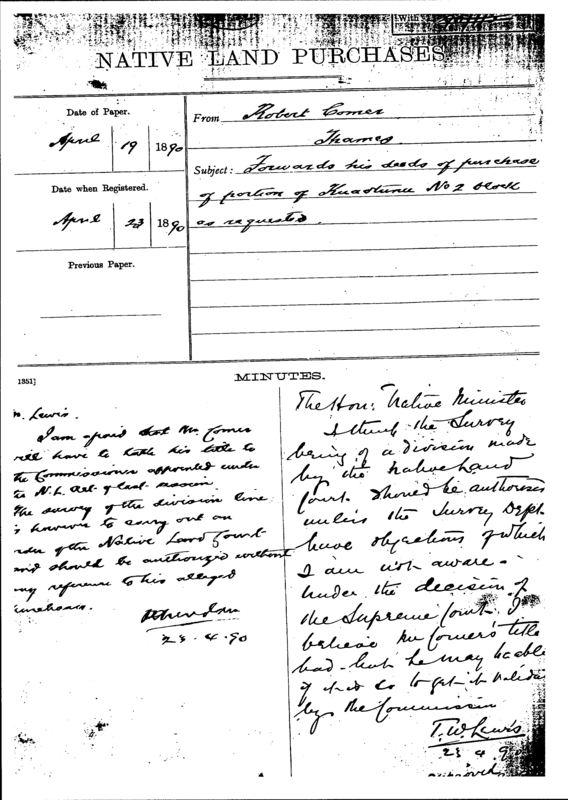 With
NATIVE LAND PURCHASES.
Date of Paper.
April 19 1890
Date when Registered.
April 23 1890
Previous Paper.
From Robert Comer
Thames
Subject: Forwards his deeds of purchase
of portion of Kuaotunu No 2 block
as requested.
1351]
MINUTES.
Lewis.
I am afraid that Mr Comer
will have to take his title to
the Commissioner appointed under
the N.L. Act of last session
The survey of the division line
is however to carry out an
order of the Native Land Court
and should be authorized without
any reference to his alleged
purchases.
23.4.90
The Hon: Native Minister
I think the Survey
being of a division made
by the Native Land
Court should be authorised
unless the Survey Dept.
have objections of which
I am not aware.
Under the decision of
the Supreme Court I
believe Mr Comer's title
bad but he may be able
if it is so to get it valida
by the Commission
T.W. Lewis
23 4 90
Approved